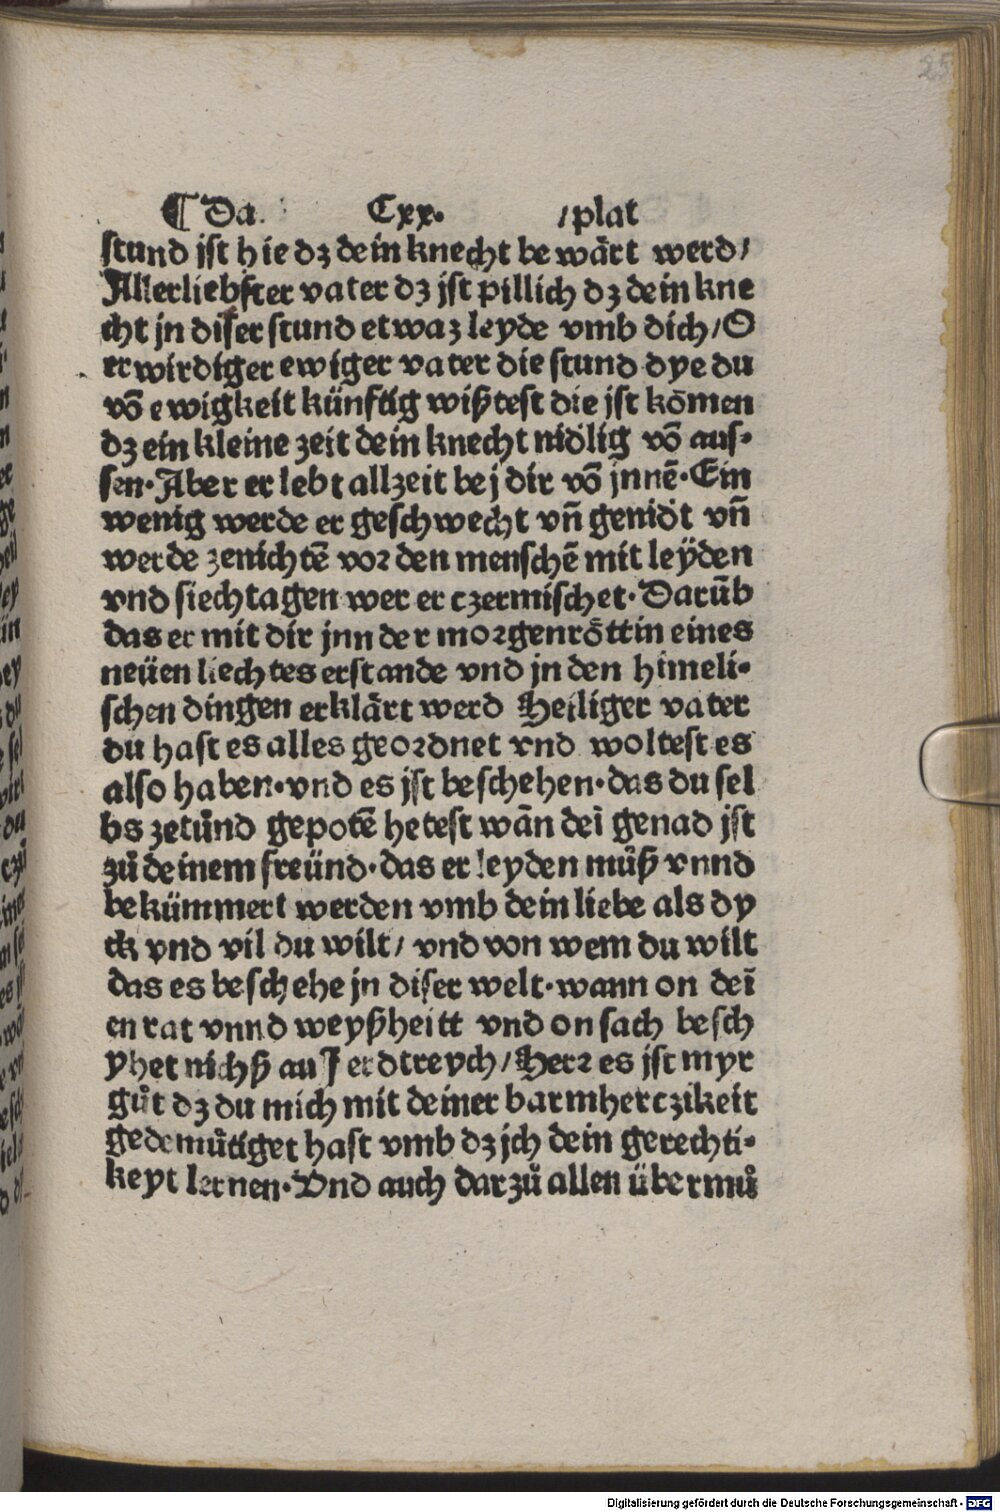 25
¶ Da. Cxx. /plat
stund jst hie dz dein knecht bewärt werd/
Allerliebster vater dz jst pillich dz dein kne
cht jn diser stund etwaz leyde vmb dich/O
erwirdiger ewiger vater die stund dye du
võ ewigkeit künftig wißtest die jst kõmen
dz ein kleine zeit dein knecht nidlig võ aus⸗
sen. Aber er lebt allzeit bej dir võ jnnẽ. Ein
wenig werde er geschwecht vñ genidt vñ
werde zenichtẽ vor den menschẽ mit leÿden
vnd siechtagen wer er czermischet. Darũb
das er mit dir jnn der morgenröttin eines
neüen liechtes erstande vnd jn den himeli⸗
schen dingen erklärt werd Heiliger vater
du hast es alles geordnet vnd woltest es
also haben. vnd es jst beschehen. das du sel
bs zetůnd gepotẽ hetest wãn deĩ genad jst
zů deinem freünd. das er leyden můß vnnd
bekümmert werden vmb dein liebe als dy
ck vnd vil du wilt/ vnd von wem du wilt
das es beschehe jn diser welt. wann on deĩ
en rat vnnd weyßheitt vnd on sach besch
yhet nichß auf erdtreych/Herr es jst myr
gůt dz du mich mit deiner barmherczikeit
gedemůtiget hast vmb dz jch dein gerechti⸗
keyt lernen. Vnd auch darzů allen übermů
Digitalisierung gefördert durch die Deutsche Forschungsgemeinschaft - DFG